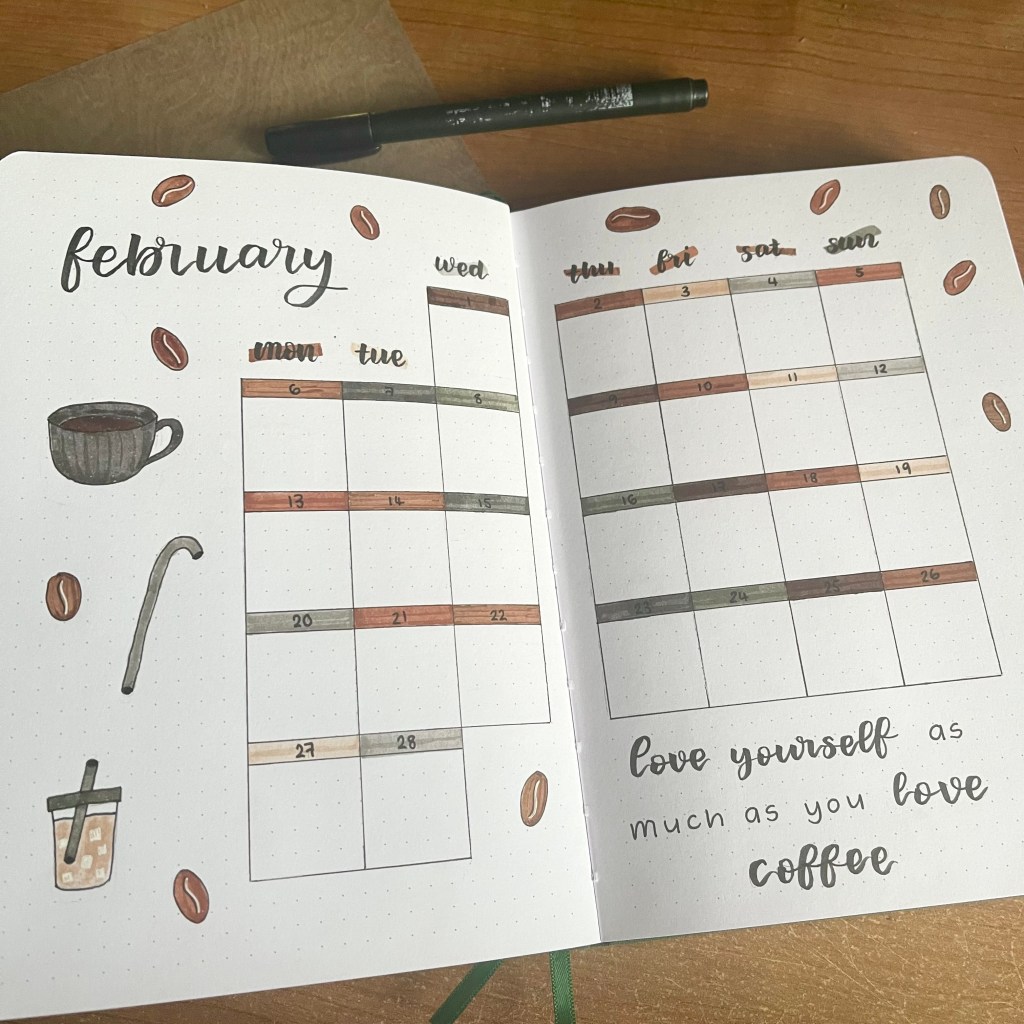 february
wed
1
mon tue
6 7 8
13 14 15
20 21 22
27 28
thu fri sat sun
2 3 4 5
9 10 11 12
16 17 18 19
23 24 25 26
love yourself as
much as you love
coffee